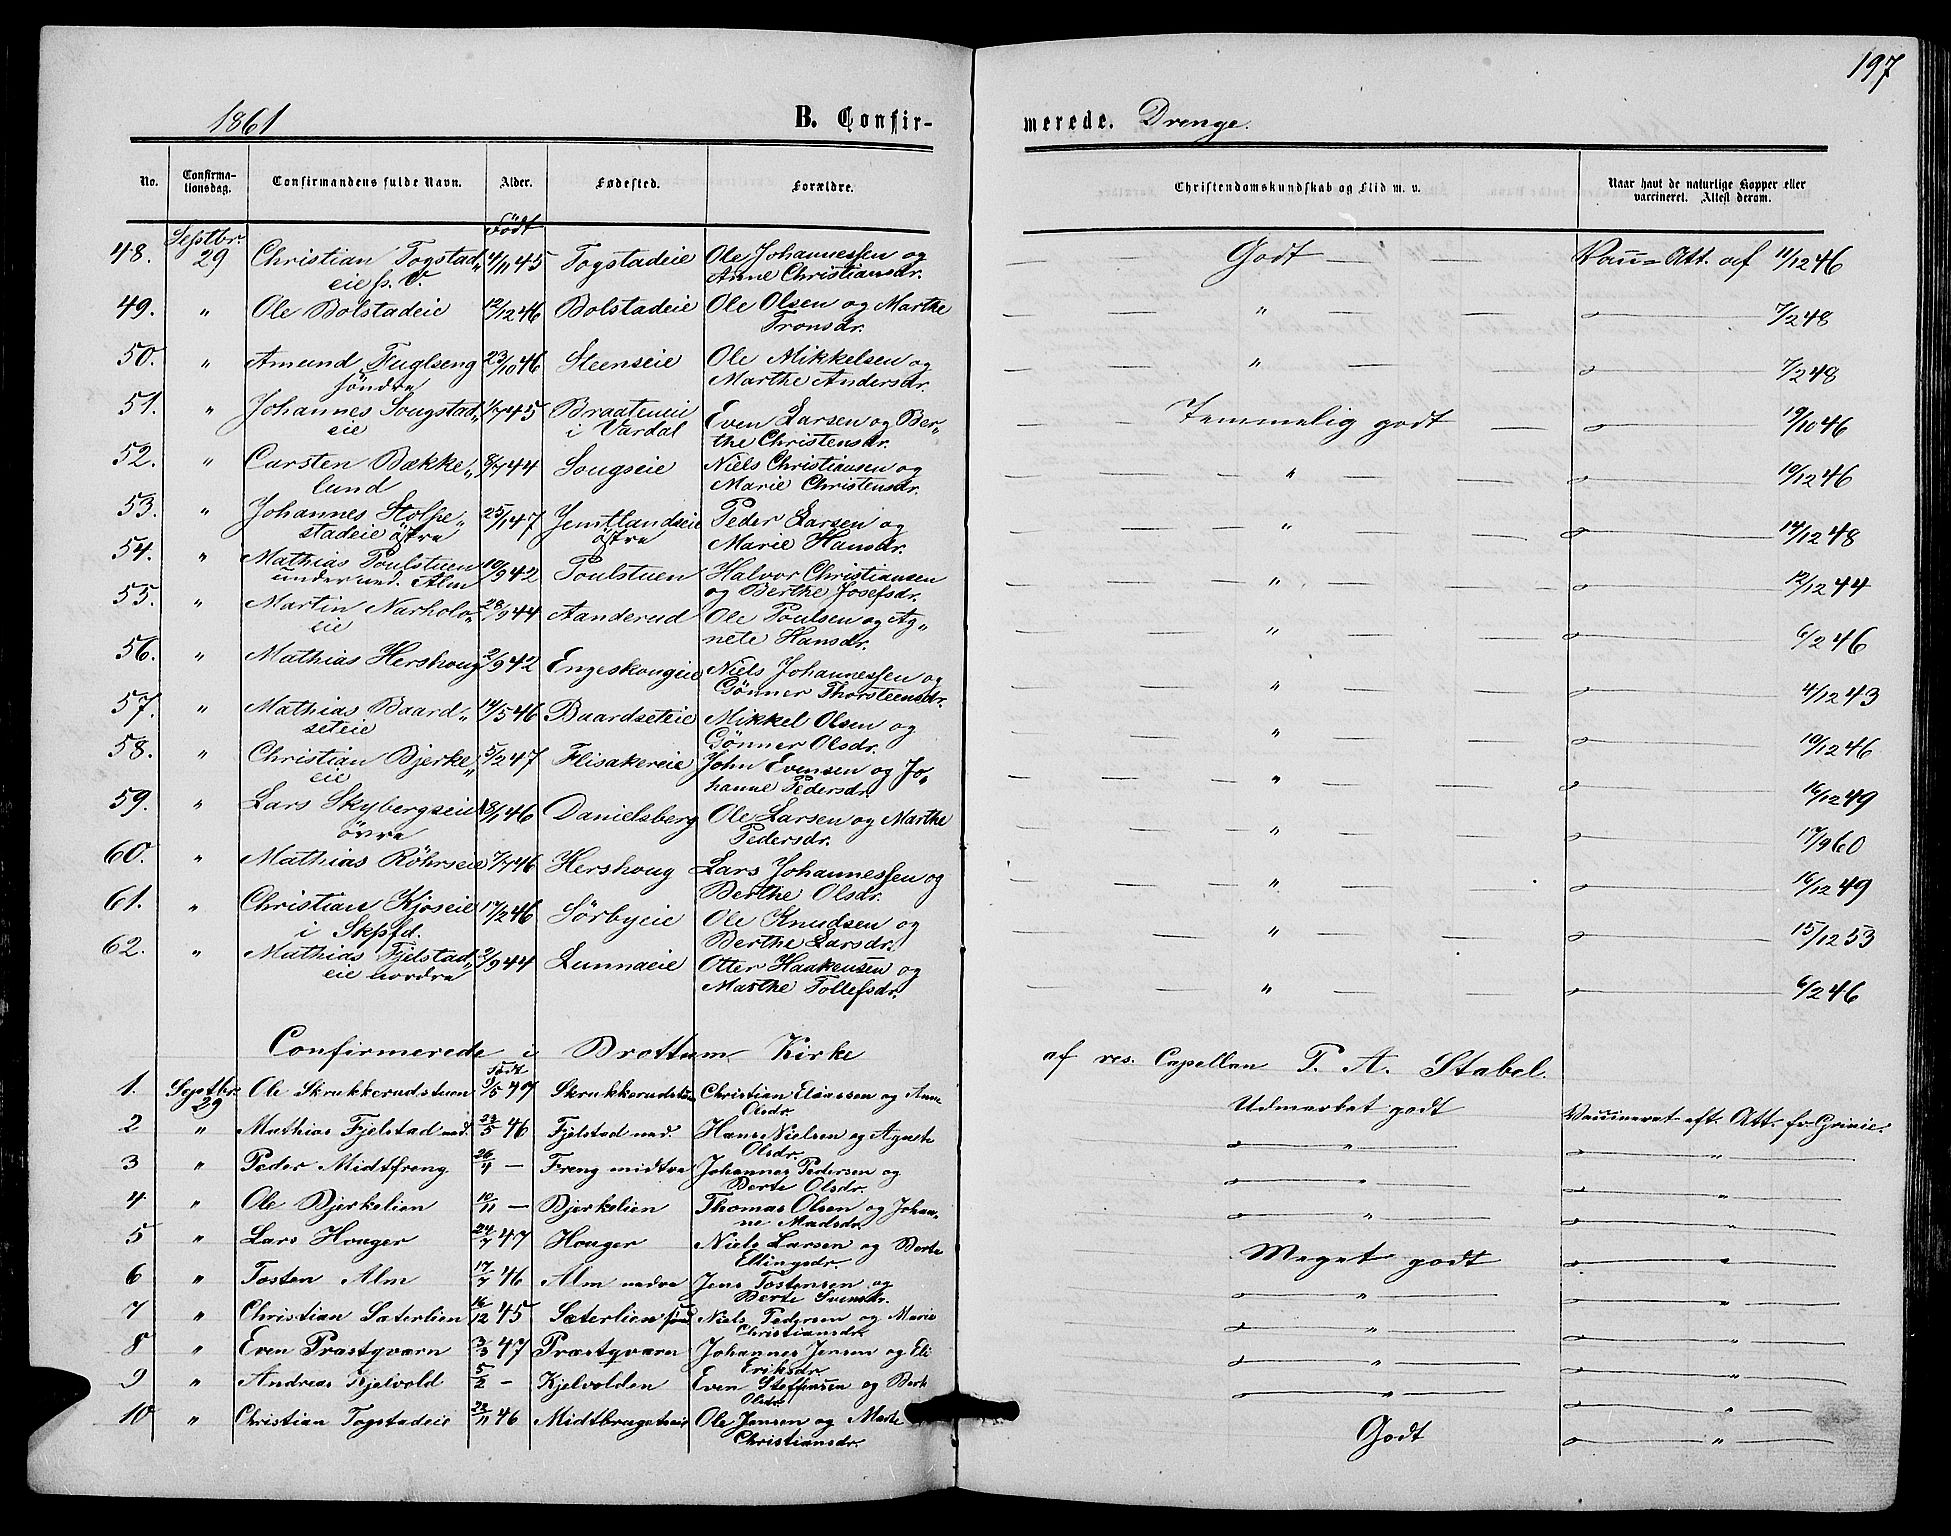 197
1861
B. Confirmerede. Drenge.
No. Confirmationsdag. Confirmandens fulde Navn. Alder. Fødested. Forældre. Christendomskundskab og Flid m. v. Naar havt de naturlige Kopper eller vaccineret. Attest derom.
48. Septbr. 29 Christian Togstad„ Født 4/11 45 Togstadeie Ole Johannessen og Godt Vacc. Att. af 11/12 46
eie p. V. Anne Christiansdr.
49. „ Ole Bolstadeie 12/12 46 Bolstadeie Ole Olsen og Marthe „ 7/2 48
Tronsdr.
50. „ Amund Fuglseng 23/10 46 Steenseie Ole Mikkelsen og „ 7/2 48
söndre Marthe Andersdr.
51. „ Johannes Sougstad„ 1/7 45 Braateneie Even Larsen og Ber„ Temmelig godt 19/10 46
eie i Vardal the Christensdr.
52. „ Carsten Bække„ 8/7 44 Sougseie Niels Christiansen og „ 19/12 46
lund Marie Christensdr.
53. „ Johannes Stolpe„ 25/1 47 Jemtlandseie Peder Larsen og „ 14/12 48
stadeie östre östre Marie Hansdr.
54. „ Mathias Poulstuen 19/9 42 Poulstuen Halvor Christiansen „ 12/12 44
under ned. Alm og Berthe Josefsdr.
55. „ Martin Narholo„ 28/9 44 Aanderud Ole Poulsen og Ag„ „ 6/2 46
eie nete Hansdr.
56. „ Mathias Hershoug 2/9 42 Engeskougeie Niels Johannessen og „ 4/12 43
Gönner Thorsteensdr.
57. „ Mathias Baard„ 14/5 46 Baardseteie Mikkel Olsen og „ 19/12 46
seteie Gönner Olsdr.
58. „ Christian Bjerke„ 5/2 47 Flisakereie John Evensen og Jo„ „ 16/12 49
eie hanne Pedersdr.
59. „ Lars Skybergseie 18/1 46 Danielsberg Ole Larsen og Marthe „ 17/9 60
övre Pedersdr.
60. „ Mathias Röhrseie 7/7 46 Hershoug Lars Johannessen og „ 16/12 49
Berthe Olsdr.
61. „ Christian Kjoseie 17/2 46 Sörbyeie Ole Knudsen og „ 15/12 53
i Skpfd. Berthe Larsdr.
62. „ Mathias Fjelstad„ 2/9 44 Lunnaeie Otter Haakensen og „ 6/2 46
eie nordre Marthe Tollefsdr.
Confirmerede i Brottum Kirke af res. Capellan P. A. Stabel.
1. Septbr. 29 Ole Skrukkerudstuen Födt 9/5 47 Skrukkerudstuen Christian Eliassen og Anne Udmærket godt Vaccineret eft. Att. fr. Grivie.
Olsdr.
2 „ Mathias Fjelstad ned. 23/5 46 Fjelstad ned. Hans Nielsen og Agnete „ „
Olsdr.
3 „ Peder Midtfreng 26/4 — Freng midtre Johannes Pedersen og „ „
Berte Olsdr.
4 „ Ole Bjerkelien 10/11 — Bjerkelien Thomas Olsen og Johan„ „ „
ne Madsdr.
5 „ Lars Houger 24/7 47 Houger Niels Larsen og Berte Meget godt „
Ellingsdr.
6 „ Tosten Alm 17/7 46 Alm nedre Jens Tostensen og „ „
Berte Svensdr.
7 „ Christian Sæterlien 16/12 45 Sæterlien sönd. Niels Pedersen og Marie „ „
Christiansdr.
8 „ Even Præstqværn 3/3 47 Præstqværn Johannes Jensen og Eli „ „
Eriksdr.
9 „ Andreas Kjelvold 5/2 — Kjelvolden Even Steffensen og Berte „ „
Olsdr.
10 „ Christian Togstadeie 23/11 46 Midtbrugetseie Ole Jensen og Marte Godt „
Christiansdr.